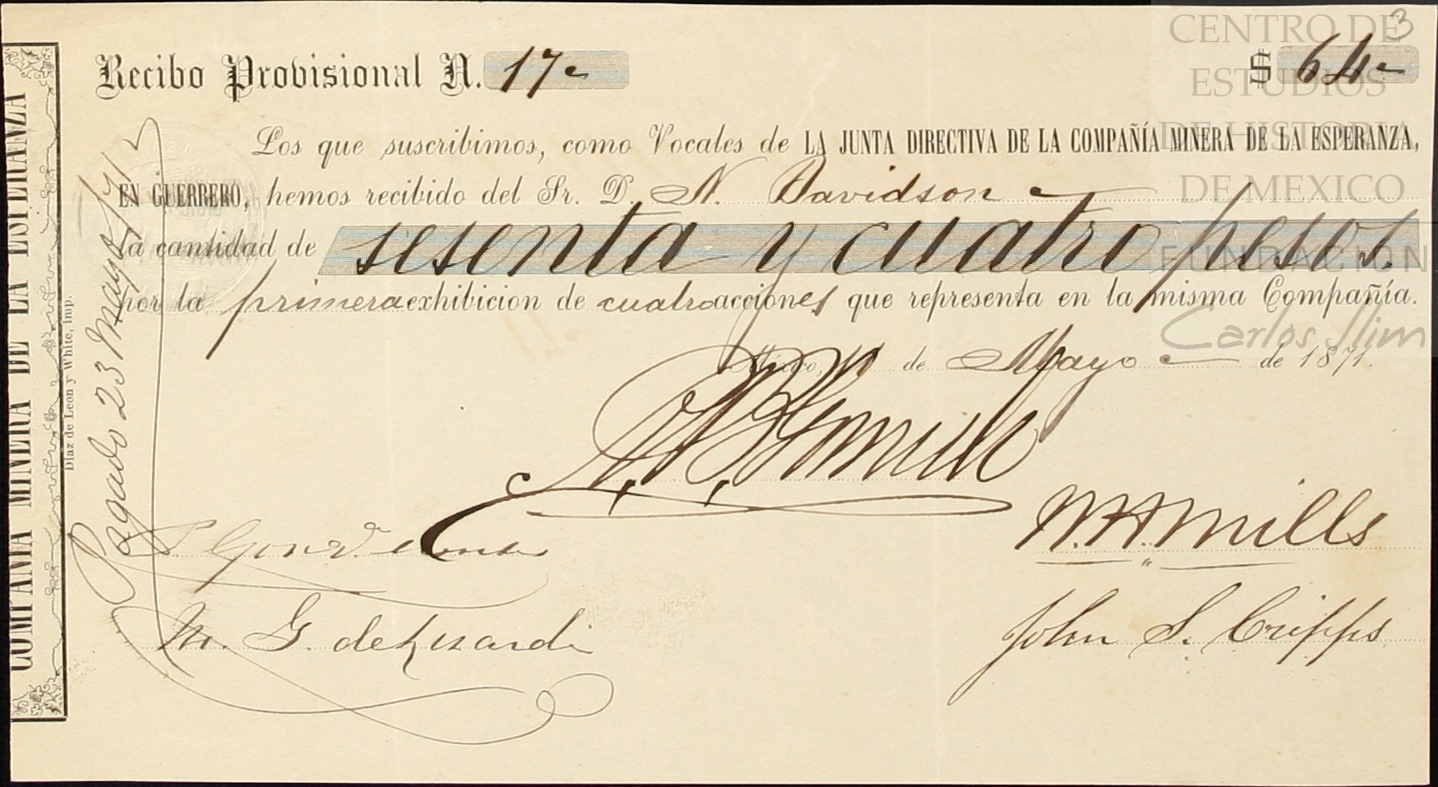 3
CENTRO DE
ESTUDIOS
DE HISTORIA
DE MEXICO
FUNDACION
Carlos Slim
Recibo Provisional N. 17
$ 64
Los que suscribimos, como Vocales de LA JUNTA DIRECTIVA DE LA COMPAÑÍA MINERA DE LA ESPERANZA,
EN GUERRERO, hemos recibido del Sr. D. N. Davidson
la cantidad de sesenta y cuatro pesos.
por la primera exhibicion de cuatro acciones que representa en la misma Compañía.
México, de Mayo de 1871.
N. A. Mills
John S. Cripps
M. G. de
Pagado 23 Mayo/71
COMPAÑIA MINERA DE LA ESPERANZA
Diaz de Leon y White, imp.